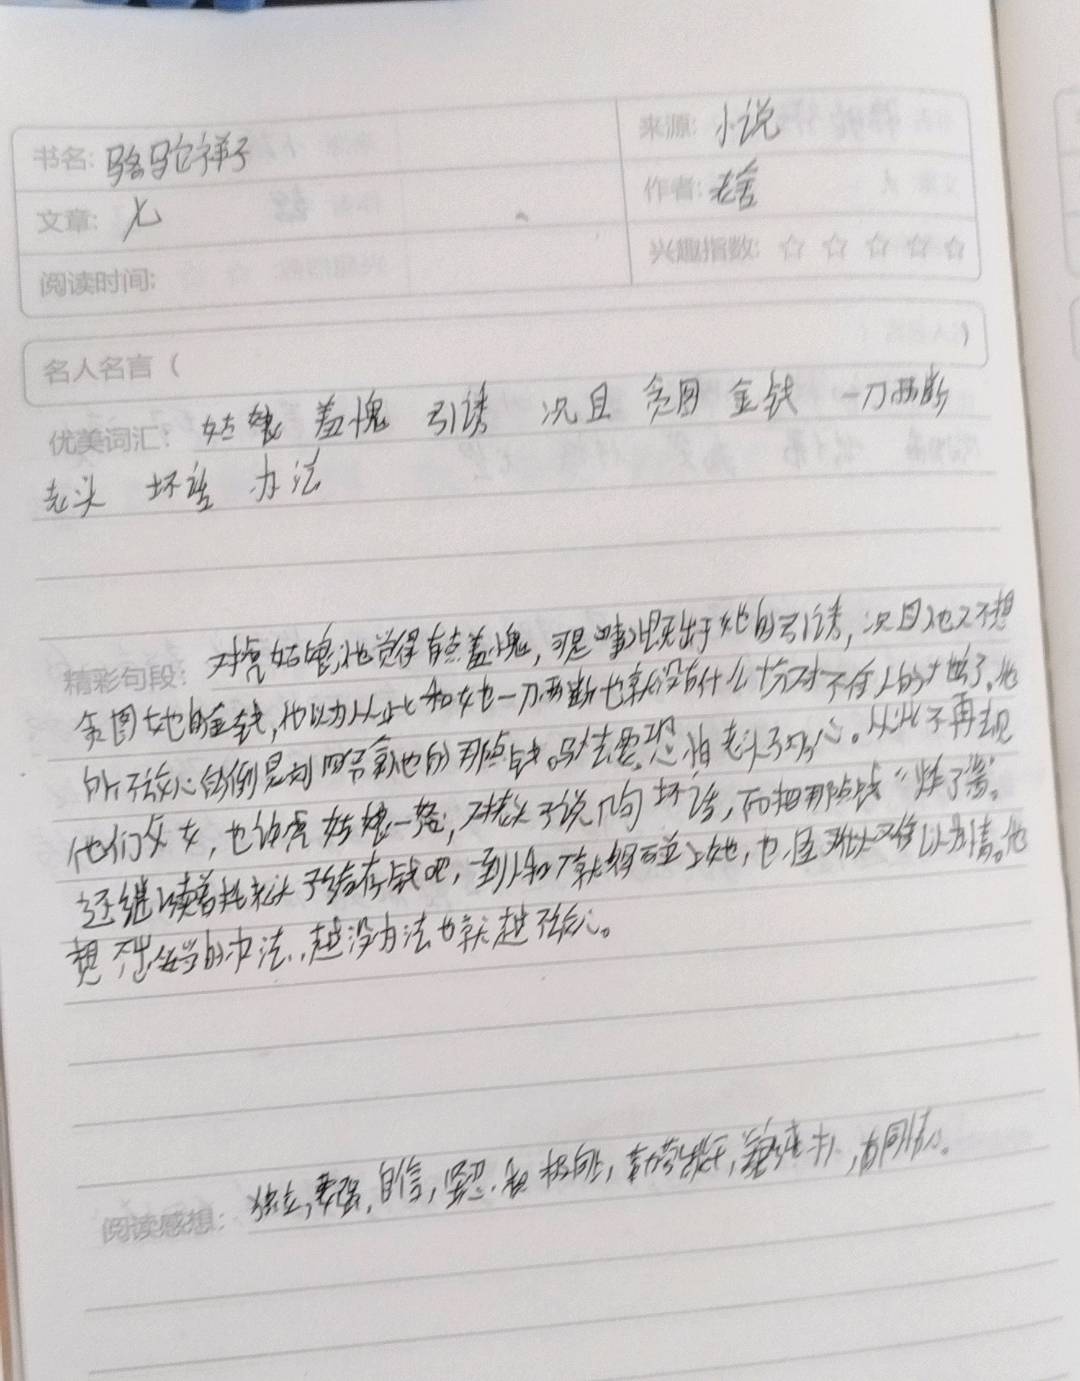 书名: 骆驼祥子 来源: 小说
文章: 七 作者: 老舍
阅读时间: 兴趣指数: ☆ ☆ ☆ ☆ ☆
名人名言 ( )
优美词汇: 姑娘 羞愧 引诱 况且 贪图 金钱 一刀两断
老头 坏话 办法
精彩句段: 对虎姑娘,他觉得有点羞愧,可是事儿既出于她的引诱,况且他又不想
贪图她的金钱,他以为从此和她一刀两断也就没有什么十分对不住人的地方了。他
所不放心的倒是刘四爷拿着他的那点钱。马上去要,恐怕老头子多心。从此不再去见
他们父女,也许虎姑娘一怒,对老头子说几句坏话,而把那点钱“炸了酱”。
还继续着托老头子给存钱吧,到人和厂就得碰上她,也且难以为情。他
想不出妥当的办法,越没办法也就越不放心。
阅读感想: 独立,要强,自信,坚忍,积极向上,勤劳,善良,有同情心。